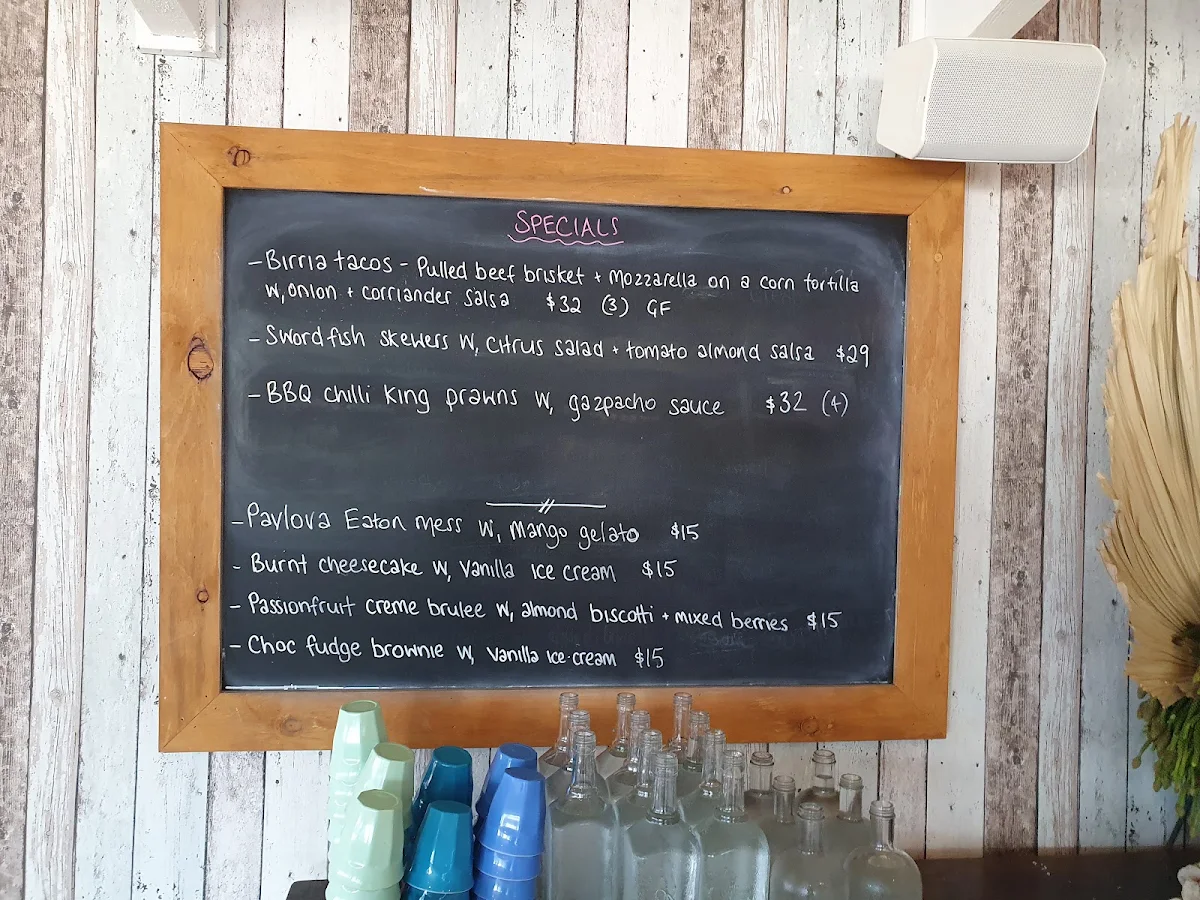 SPECIALS
- Birria tacos - Pulled beef brisket + Mozzarella on a corn tortilla
w, onion + corriander salsa $32 (3) GF
- Swordfish skewers w, citrus salad + tomato almond salsa $29
- BBQ chilli King prawns w, gazpacho sauce $32 (4)
- Pavlova Eaton mess w, mango gelato $15
- Burnt cheesecake w, vanilla ice cream $15
- Passionfruit creme brulee w, almond biscotti + mixed berries $15
- Choc fudge brownie w, vanilla ice-cream $15